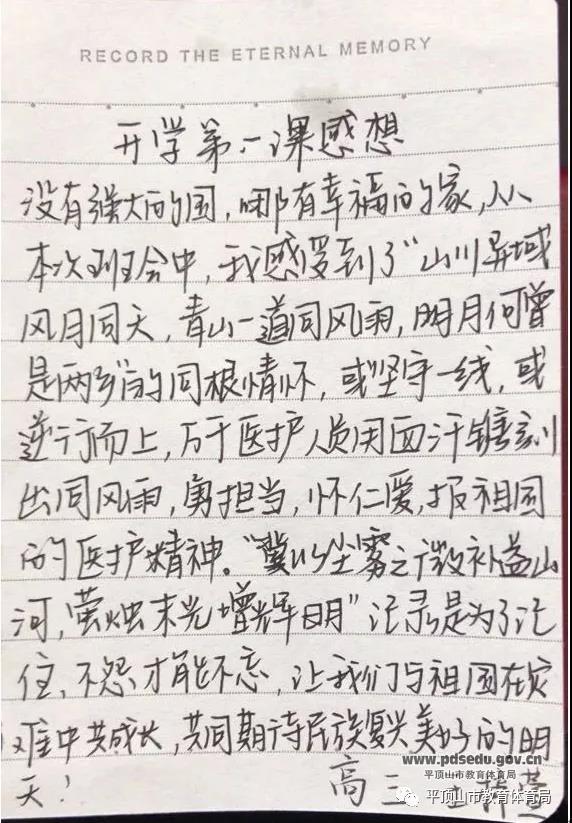 RECORD THE ETERNAL MEMORY
开学第一课感想
没有强大的国，哪有幸福的家，从
本次班会中，我感受到了“山川异域
风月同天，青山一道同风雨，明月何曾
是两乡”的同根情怀，或坚守一线，或
逆行而上，万千医护人员用血汗镌刻
出同风雨，勇担当，怀仁爱，报祖国
的医护精神。“冀以尘雾之微补益山
河，萤烛末光增辉日月”记录是为了记
住，不怨才能不忘，让我们与祖国在灾
难中共成长，共同期待民族复兴美好的明
天！
高三
www.pdsedu.gov.cn
平顶山市教育体育局
平顶山市教育体育局